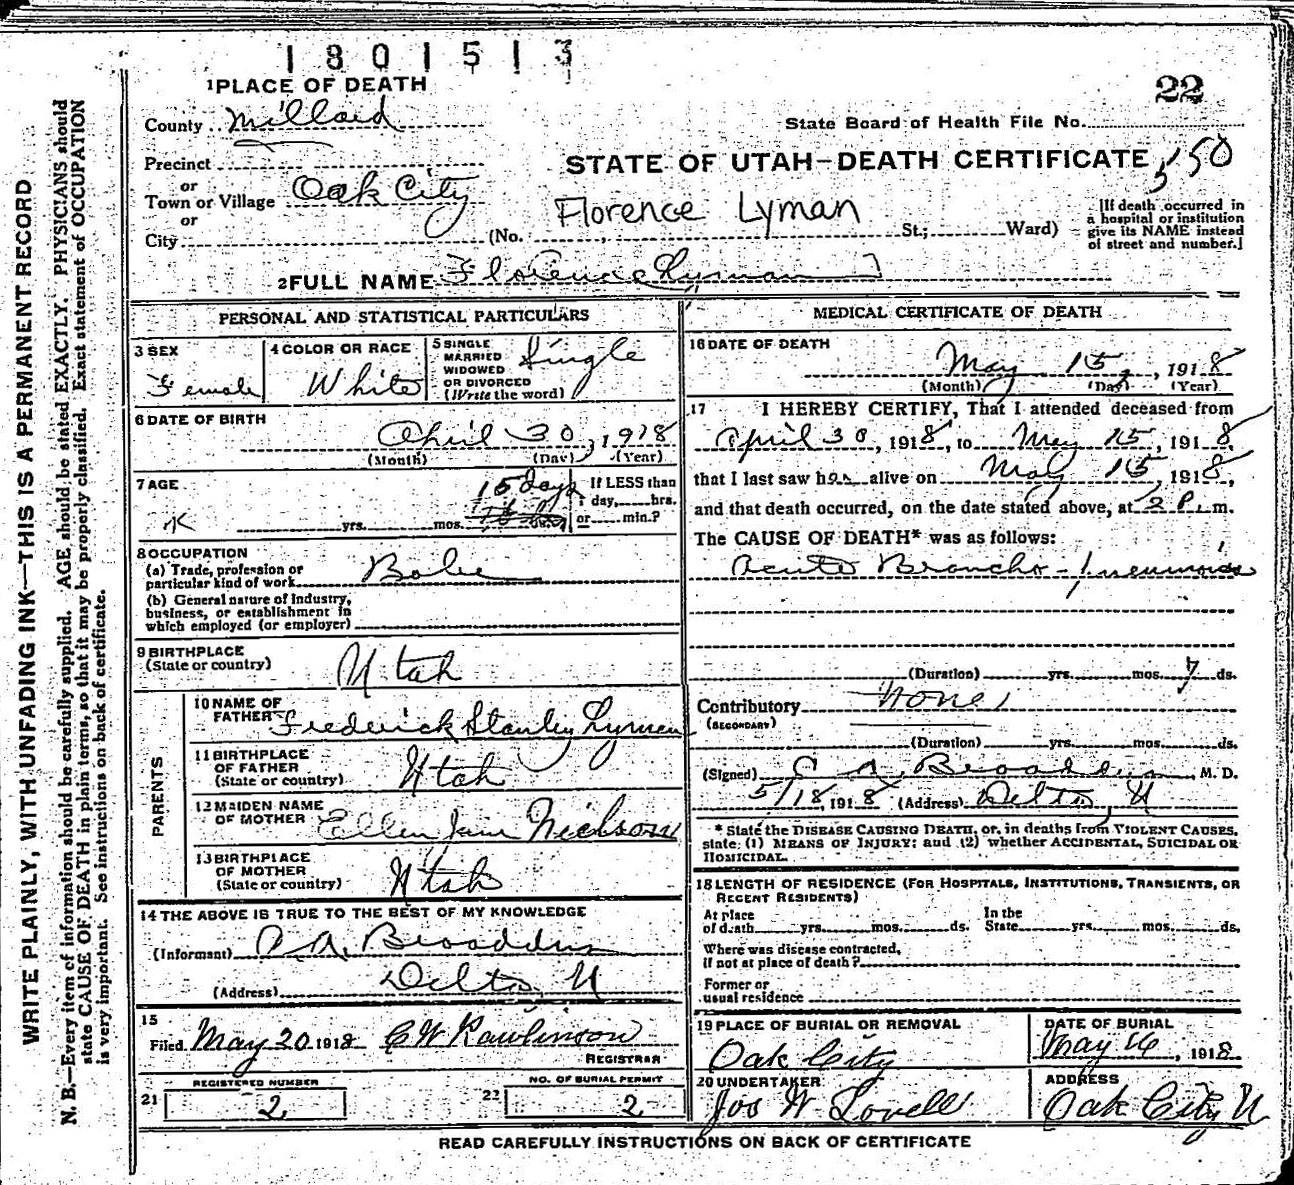 1801513
22
1 PLACE OF DEATH
County Millard
State Board of Health File No.
Precinct
STATE OF UTAH—DEATH CERTIFICATE 550
or
Town or Village Oak City
or
Florence Lyman
City (No. St.; Ward)
[If death occurred in
a hospital or institution
give its NAME instead
of street and number.]
2 FULL NAME Florence Lyman
PERSONAL AND STATISTICAL PARTICULARS
3 SEX
Female
4 COLOR OR RACE
White
5 SINGLE
MARRIED
WIDOWED
OR DIVORCED
(Write the word)
Single
6 DATE OF BIRTH
April 30, 1918
(Month) (Day) (Year)
7 AGE
15 days
yrs. mos.
If LESS than
1 day, hrs.
or min.?
8 OCCUPATION
(a) Trade, profession or
particular kind of work
(b) General nature of industry,
business, or establishment in
which employed (or employer)
9 BIRTHPLACE
(State or country)
Utah
PARENTS
10 NAME OF
FATHER Frederick Stanley Lyman
11 BIRTHPLACE
OF FATHER
(State or country) Utah
12 MAIDEN NAME
OF MOTHER Ellen Jane Nielson
13 BIRTHPLACE
OF MOTHER
(State or country) Utah
14 THE ABOVE IS TRUE TO THE BEST OF MY KNOWLEDGE
(Informant) Broaddus
(Address) Delta, U
15
Filed May 20 1918 C W Rawlinson
REGISTRAR
REGISTERED NUMBER
21 2
NO. OF BURIAL PERMIT
22 2
MEDICAL CERTIFICATE OF DEATH
16 DATE OF DEATH
May 15, 1918
(Month) (Day) (Year)
17 I HEREBY CERTIFY, That I attended deceased from
April 30, 1918, to May 15, 1918
that I last saw her alive on May 15 1918,
and that death occurred, on the date stated above, at 2 P.m.
The CAUSE OF DEATH* was as follows:
Acute Broncho-pneumonia
(Duration) yrs. mos. 7 ds.
Contributory None
(SECONDARY)
(Duration) yrs. mos. ds.
(Signed) Broaddus, M. D.
5/18, 1918 (Address) Delta, U
* State the DISEASE CAUSING DEATH, or, in deaths from VIOLENT CAUSES,
state: (1) MEANS OF INJURY; and (2) whether ACCIDENTAL, SUICIDAL OR
HOMICIDAL.
18 LENGTH OF RESIDENCE (FOR HOSPITALS, INSTITUTIONS, TRANSIENTS, OR
RECENT RESIDENTS)
At place
of death yrs. mos. ds.
In the
State yrs. mos. ds.
Where was disease contracted,
if not at place of death?
Former or
usual residence
19 PLACE OF BURIAL OR REMOVAL
Oak City
DATE OF BURIAL
May 16, 1918
20 UNDERTAKER
Jos W Lovell
ADDRESS
Oak City U
READ CAREFULLY INSTRUCTIONS ON BACK OF CERTIFICATE
WRITE PLAINLY, WITH UNFADING INK—THIS IS A PERMANENT RECORD
N. B.—Every item of information should be carefully supplied. AGE should be stated EXACTLY. PHYSICIANS should
state CAUSE OF DEATH in plain terms, so that it may be properly classified. Exact statement of OCCUPATION
is very important. See instructions on back of certificate.